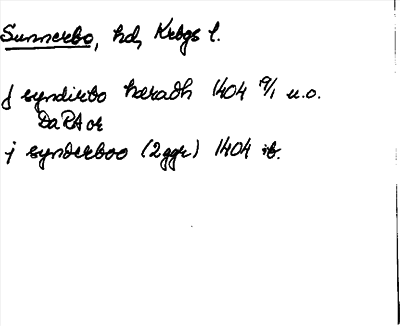 Sunnerbo, hd, Krbgs l.
j syndirbo hæradh 1404 9/1 u.o.
DaRA or
j synderboo (2ggr) 1404 ib.